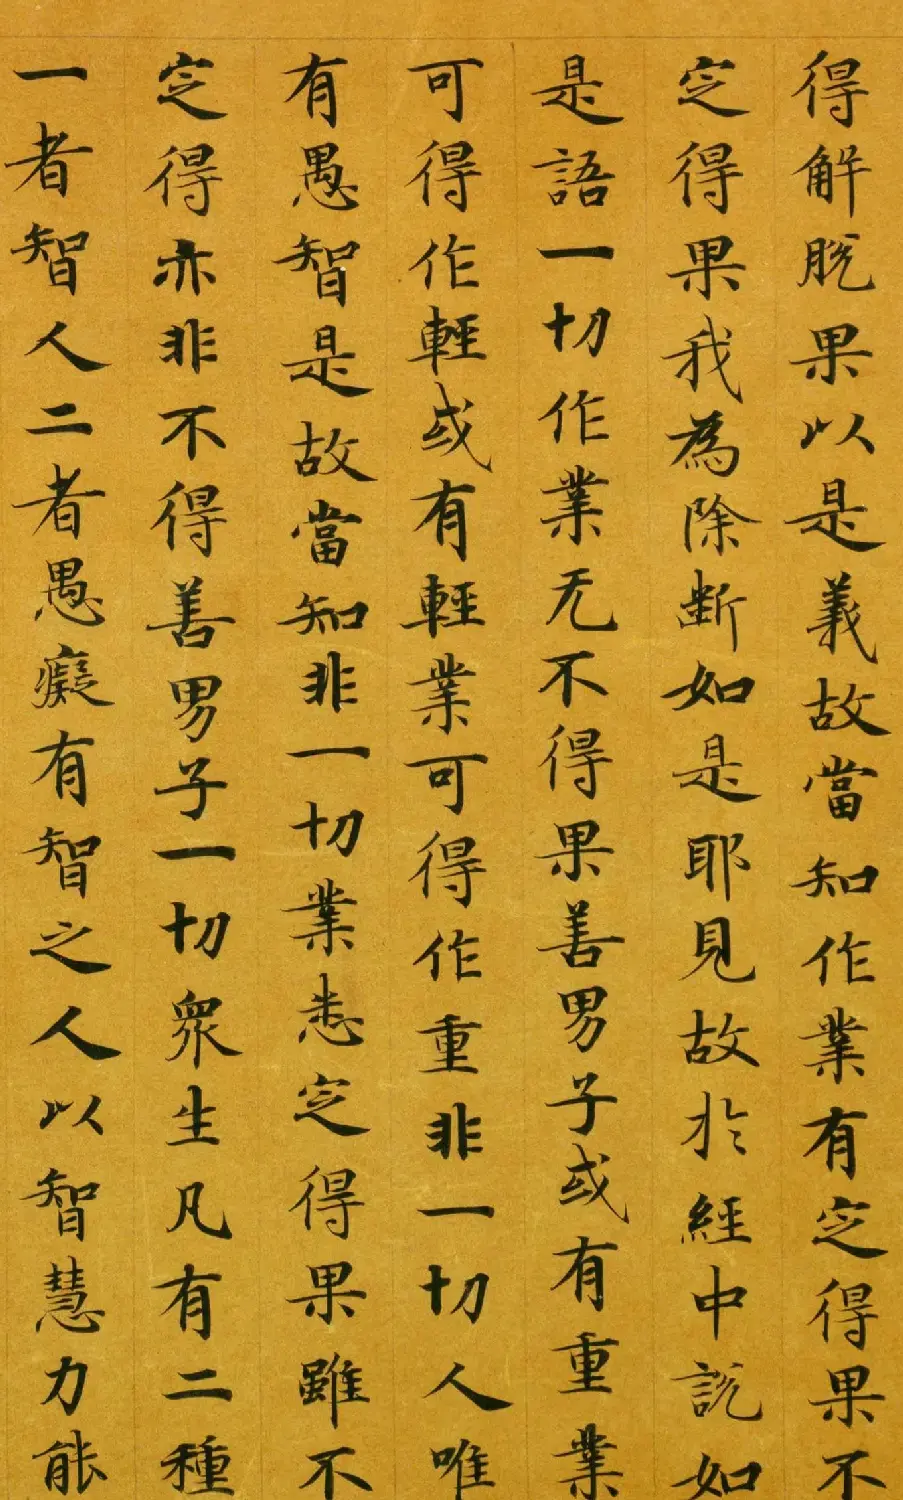 得解脱果以是義故當知作業有定得果不
定得果我為除斷如是耶見故於經中說如
是語一切作業无不得果善男子或有重業
可得作輕或有輕業可得作重非一切人唯
有愚智是故當知非一切業悉定得果雖不
定得亦非不得善男子一切眾生凡有二種
一者智人二者愚癡有智之人以智慧力能